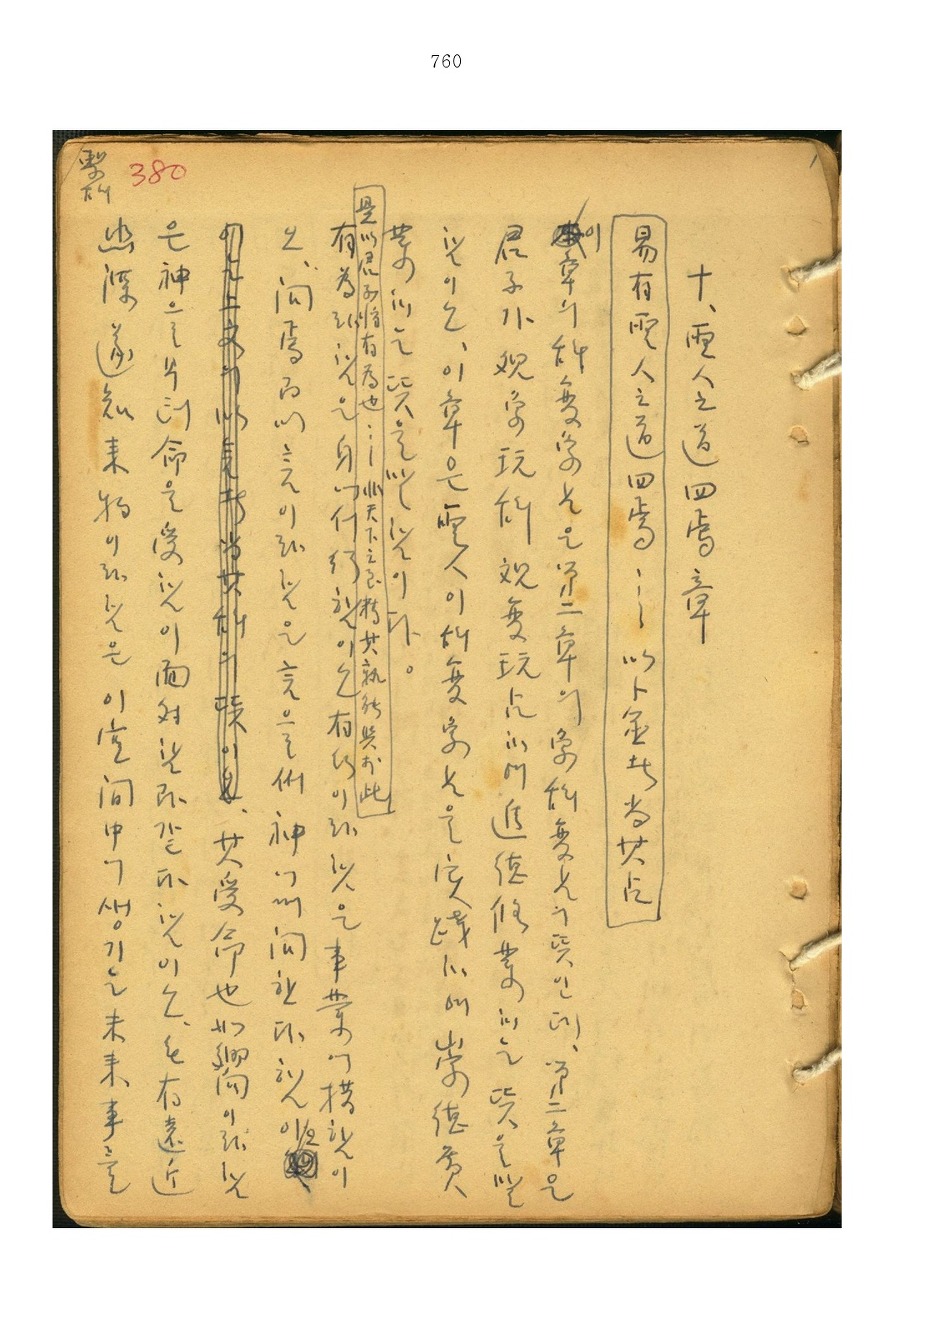 760
繫辭
380
十、聖人之道四焉章
易有聖人之道四焉……以卜筮者尙其占
이 章의 辭變象占은 第二章의 象辭變占의 뜻인데、第二章은
君子가 觀象玩辭 觀變玩占하여 進德修業하는 뜻을 말
한 것이오、이 章은 聖人이 辭變象占을 實踐하여 崇德廣
業하는 뜻을 말한 것이다。
是以君子將有爲也……非天下之至精 其孰能與於此
有爲라 한 것은 身에 行한 것이오 有行이라 한 것은 事業에 措한 것이
오、問焉而以言이라 한 것은 言으로써 神에게 問한다 한 것이오
、其受命也如嚮이라 한 것
은 神으로부터 命을 受한 것이 面對한
것이오、无有遠近
幽深遂知來物이라 한 것은 이 空間中에 생기는 未來事를